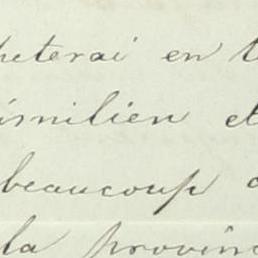 heterai en t
ismilien et
beaucoup
la provinc